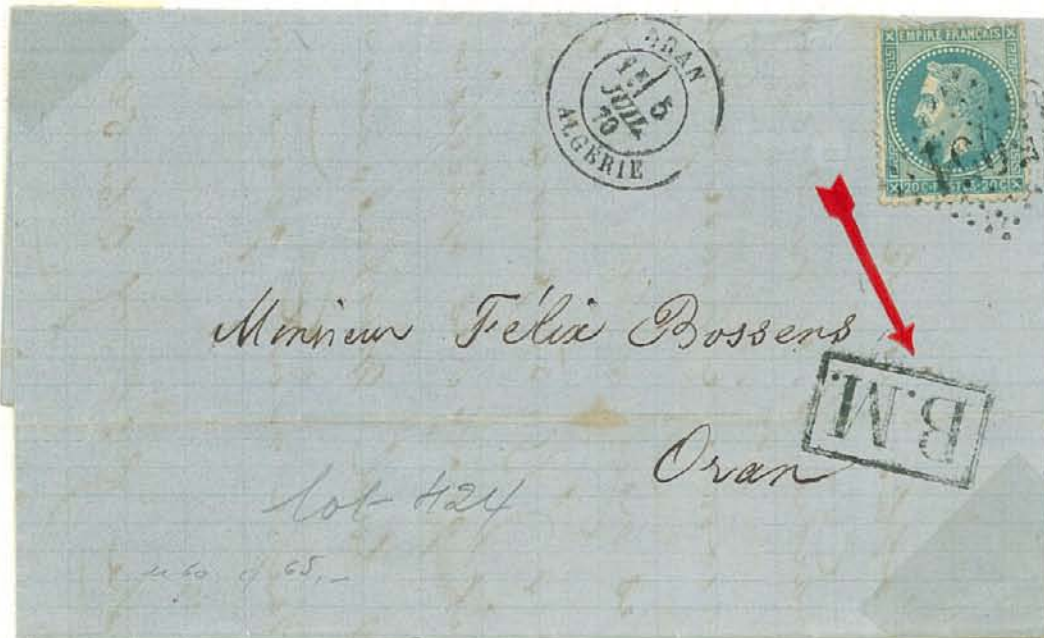 ORAN
5
JUIL.
70
ALGÉRIE
EMPIRE FRANÇAIS
20 C. POSTES 20 C
Monsieur Félix Bossens
B.M.
Oran
lot 424
65,-